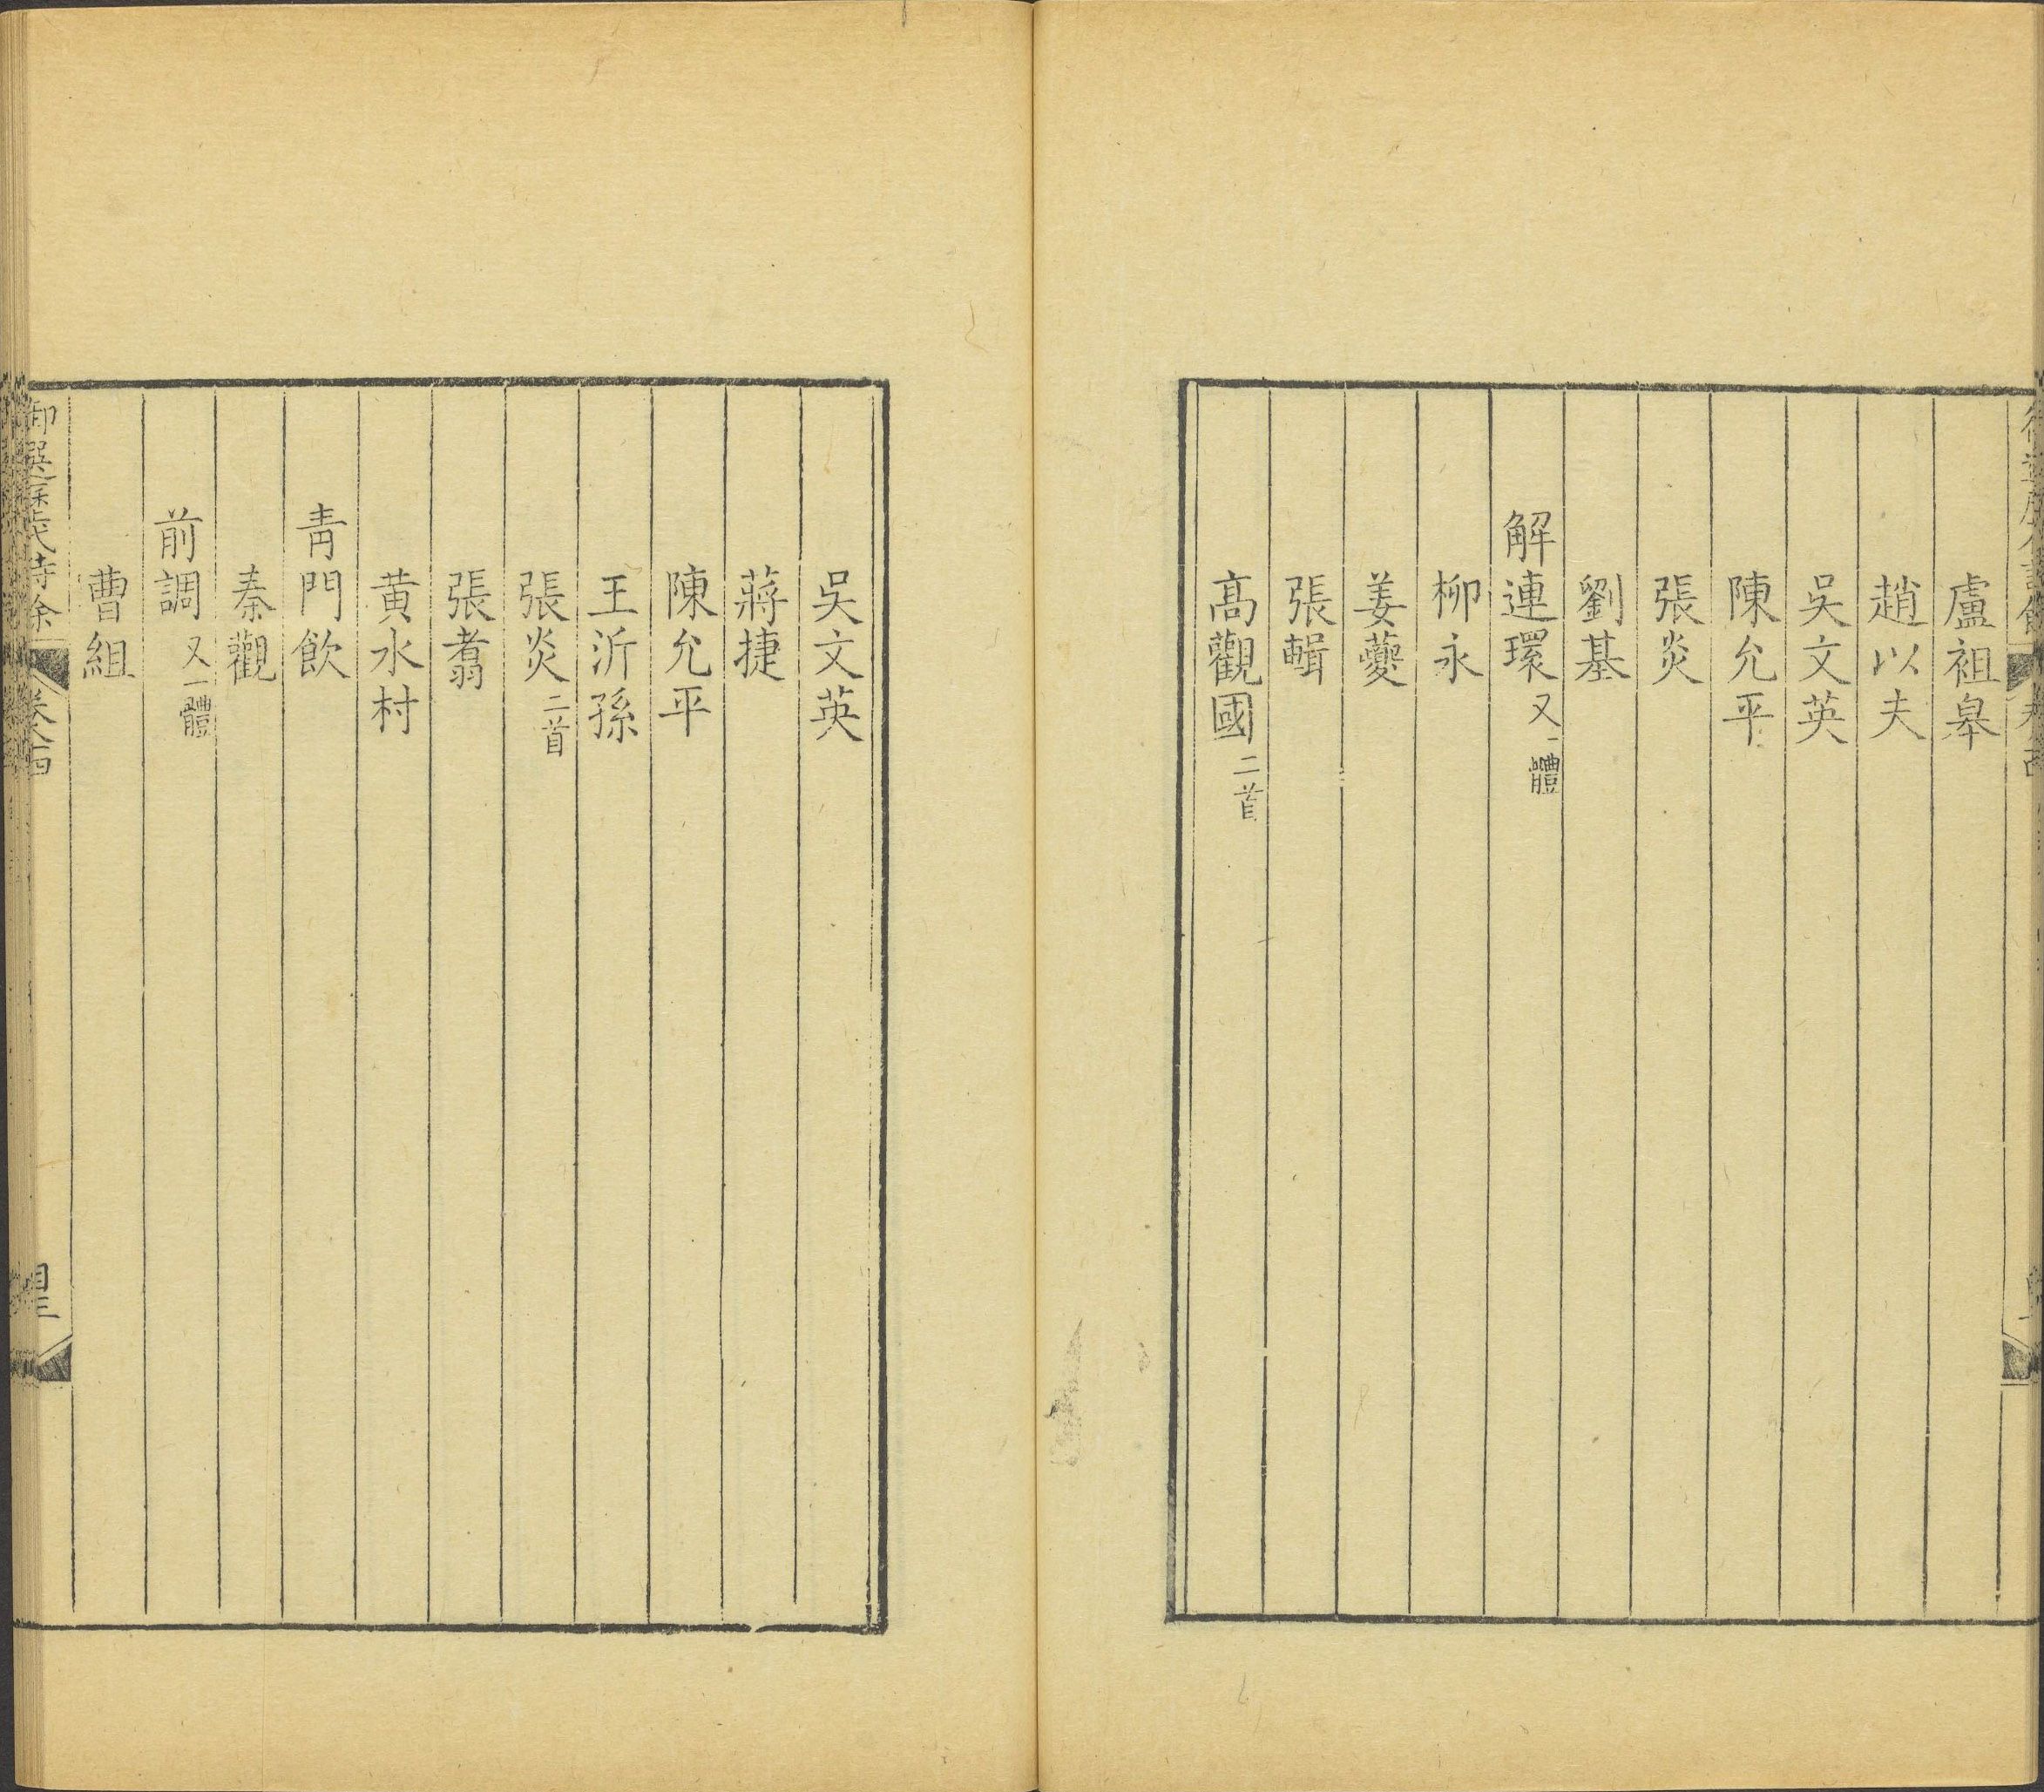 盧祖皋
趙以夫
吳文英
陳允平
張炎
劉基
解連環又一體
柳永
姜夔
張輯
高觀國二首
吳文英
蔣捷
陳允平
王沂孫
張炎二首
張翥
黄水村
青門飲
秦觀
前調又一體
曹組
御選歷代詩餘 卷八十四